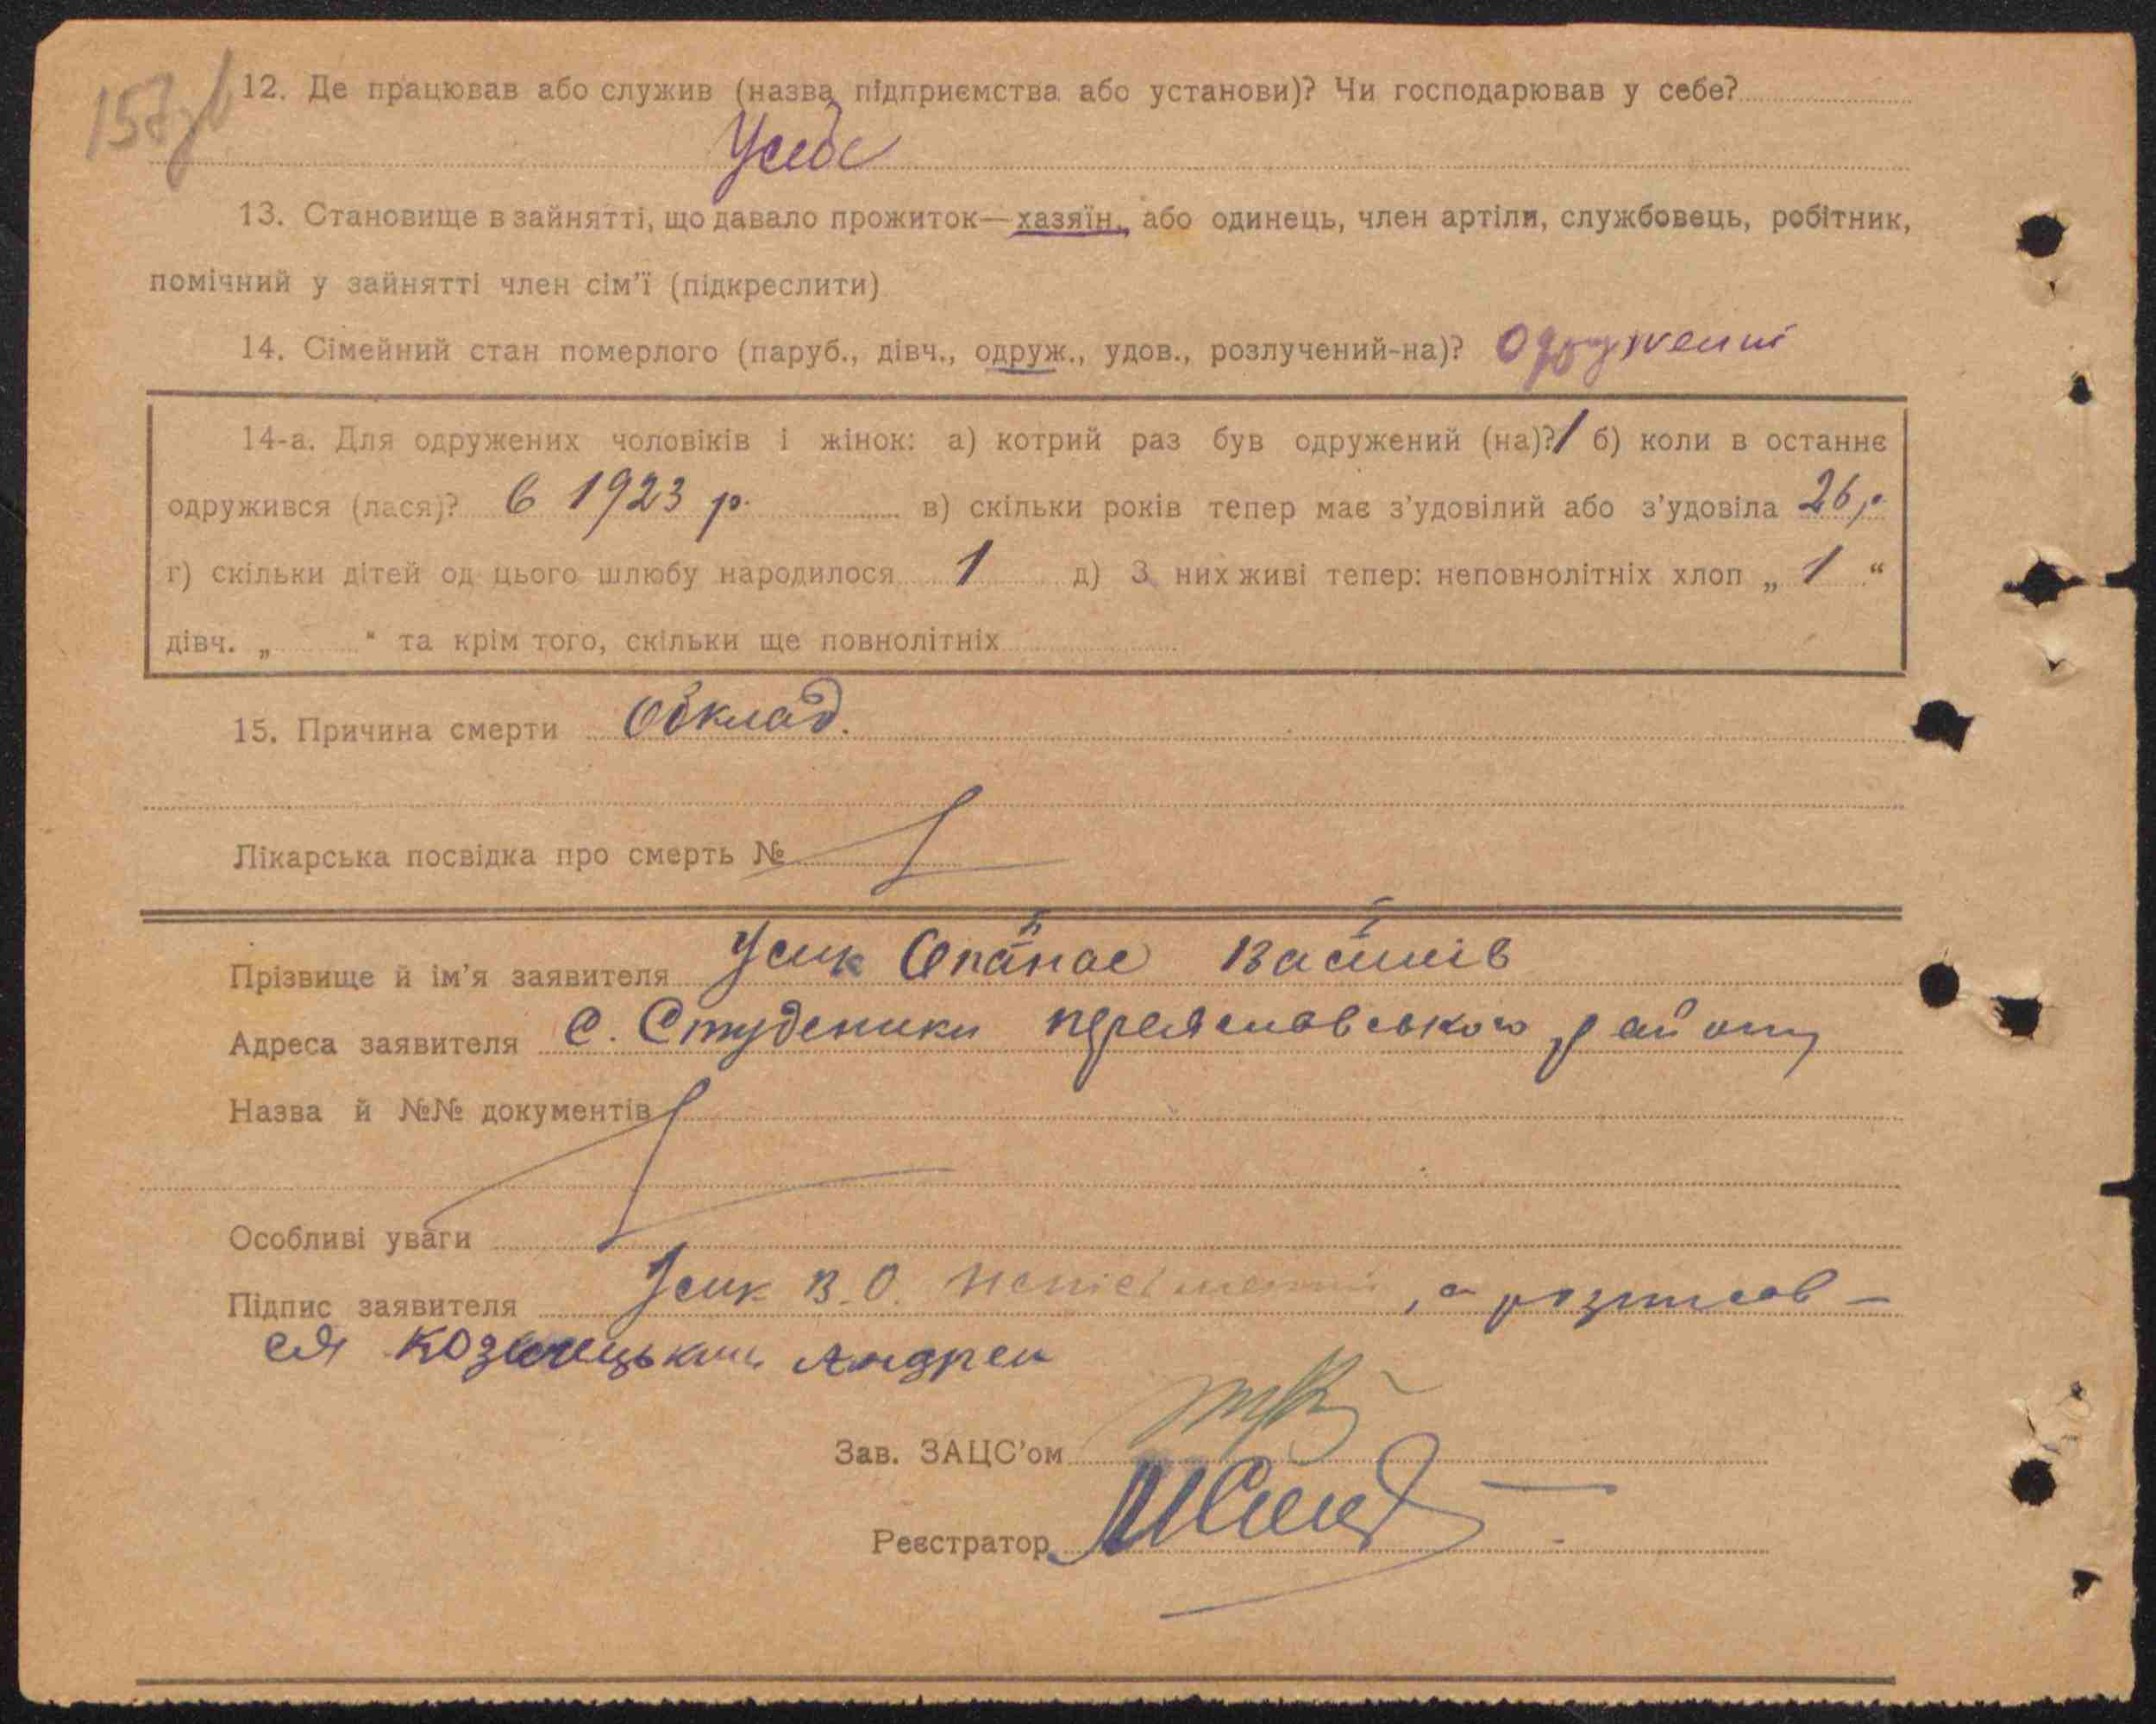 157зв
12. Де працював або служив (назва підприємства або установи)? Чи господарював у себе?
У себе
13. Становище в зайнятті, що давало прожиток—хазяїн, або одинець, член артіли, службовець, робітник,
помічний у зайнятті член сім’ї (підкреслити)
14. Сімейний стан померлого (паруб., дівч., одруж., удов., розлучений-на)? Одружений
14-а. Для одружених чоловіків і жінок: а) котрий раз був одружений (на)? 1 б) коли в останнє
одружився (лася)? в 1923 р. в) скільки років тепер має з’удовілий або з’удовіла 26 р.
г) скільки дітей од цього шлюбу народилося 1 д) З них живі тепер: неповнолітніх хлоп „ 1 “
дівч. „ “ та крім того, скільки ще повнолітніх
15. Причина смерти Обклад.
Лікарська посвідка про смерть №
Прізвище й ім’я заявителя Усик Опанас
Адреса заявителя С. Студеники переяславського району
Назва й №№ документів
Особливі уваги
Підпис заявителя Усик В.О. неписьменний, а розписов-
ся Андрей
Зав. ЗАЦС’ом
Реєстратор